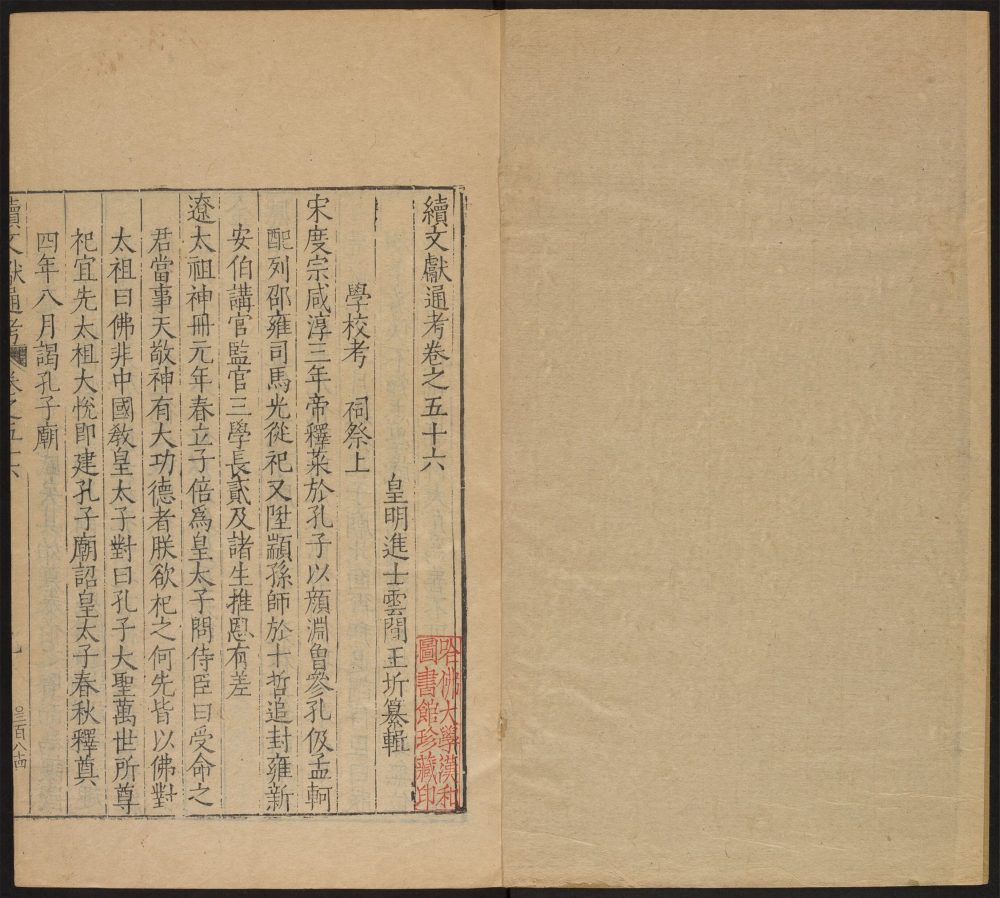 續文獻通考卷之五十六
皇明進士雲間王圻纂輯
學校考 祠祭上
宋度宗咸淳三年帝釋菜於孔子以顏淵魯參孔伋孟軻
配列邵雍司馬光從祀又陞顓孫師於十哲追封雍新
安伯講官監官三學長貳及諸生推恩有差
遼太祖神冊元年春立子倍爲皇太子問侍臣曰受命之
君當事天敬神有大功德者朕欲祀之何先皆以佛對
太祖曰佛非中國教皇太子對曰孔子大聖萬世所尊
祀宜先太祖大悅卽建孔子廟詔皇太子春秋釋奠
四年八月謁孔子廟
續文獻通考 卷之五十六
三百八十四
哈佛大學漢和
圖書館珍藏印